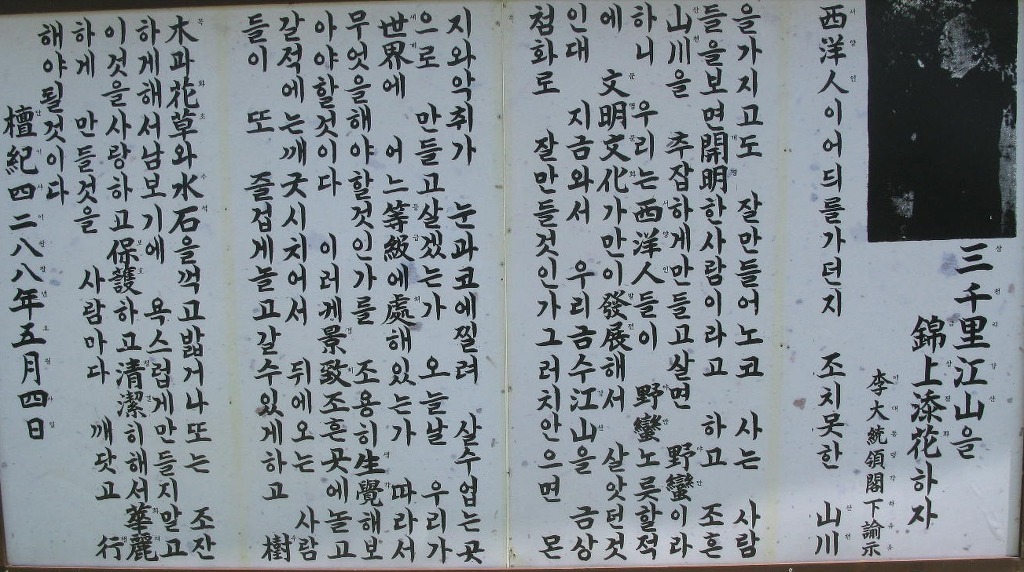 三千里江山을
錦上添花하자
李大統領閣下諭示
西洋人이어듸를가던지 조치못한 山川
을가지고도 잘만들어노코 사는 사람
들을보면開明한사람이라고 하고 조흔
山川을 추잡하게만들고살면 野蠻이라
하니 우리는西洋人들이 野蠻노릇할적
에 文明文化가만이發展해서 살앗던것
인대 지금와서 우리금수江山을 금상
첨화로 잘만들것인가그러치안으면 몬
지와악취가 눈과코에찔려 살수업는곳
으로 만들고살겠는가 오늘날 우리가
世界에 어느等級에處해있는가 따라서
무엇을해야할것인가를 조용히生覺해보
아야할것이다 이러케景致조흔곳에놀고
갈적에는깨긋시치어서 뒤에오는 사람
들이 또 즐겁게놀고갈수있게하고 樹
木과花草와水石을꺽고밟거나또는 조잔
하게해서남보기에 욕스럽게만들지말고
이것을사랑하고保護하고清潔히해서華麗
하게 만들것을 사람마다 깨닷고 行
해야될것이다
檀紀四二八八年五月四日